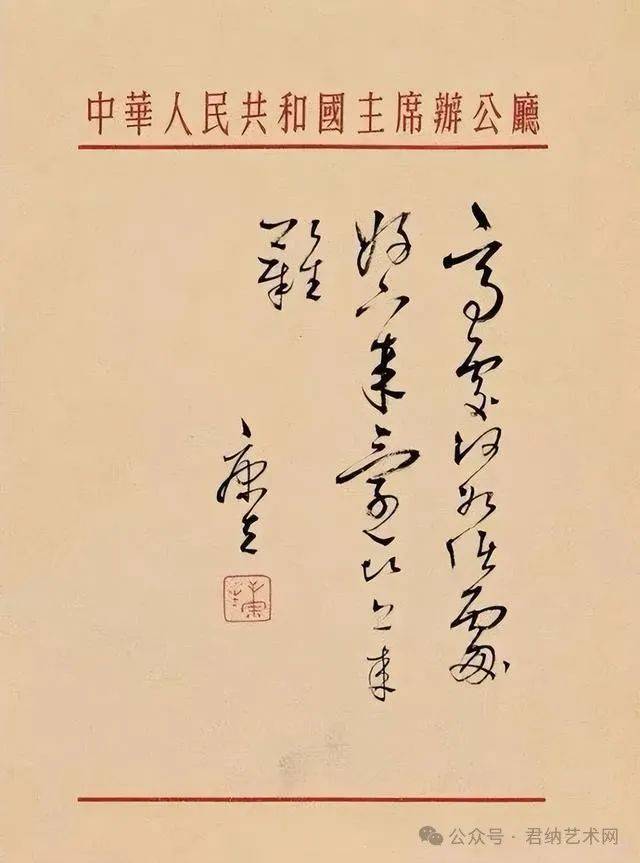 中華人民共和國主席辦公廳
高處何如低處
好下來還比上來
難
康生
公众号 · 君纳艺术网